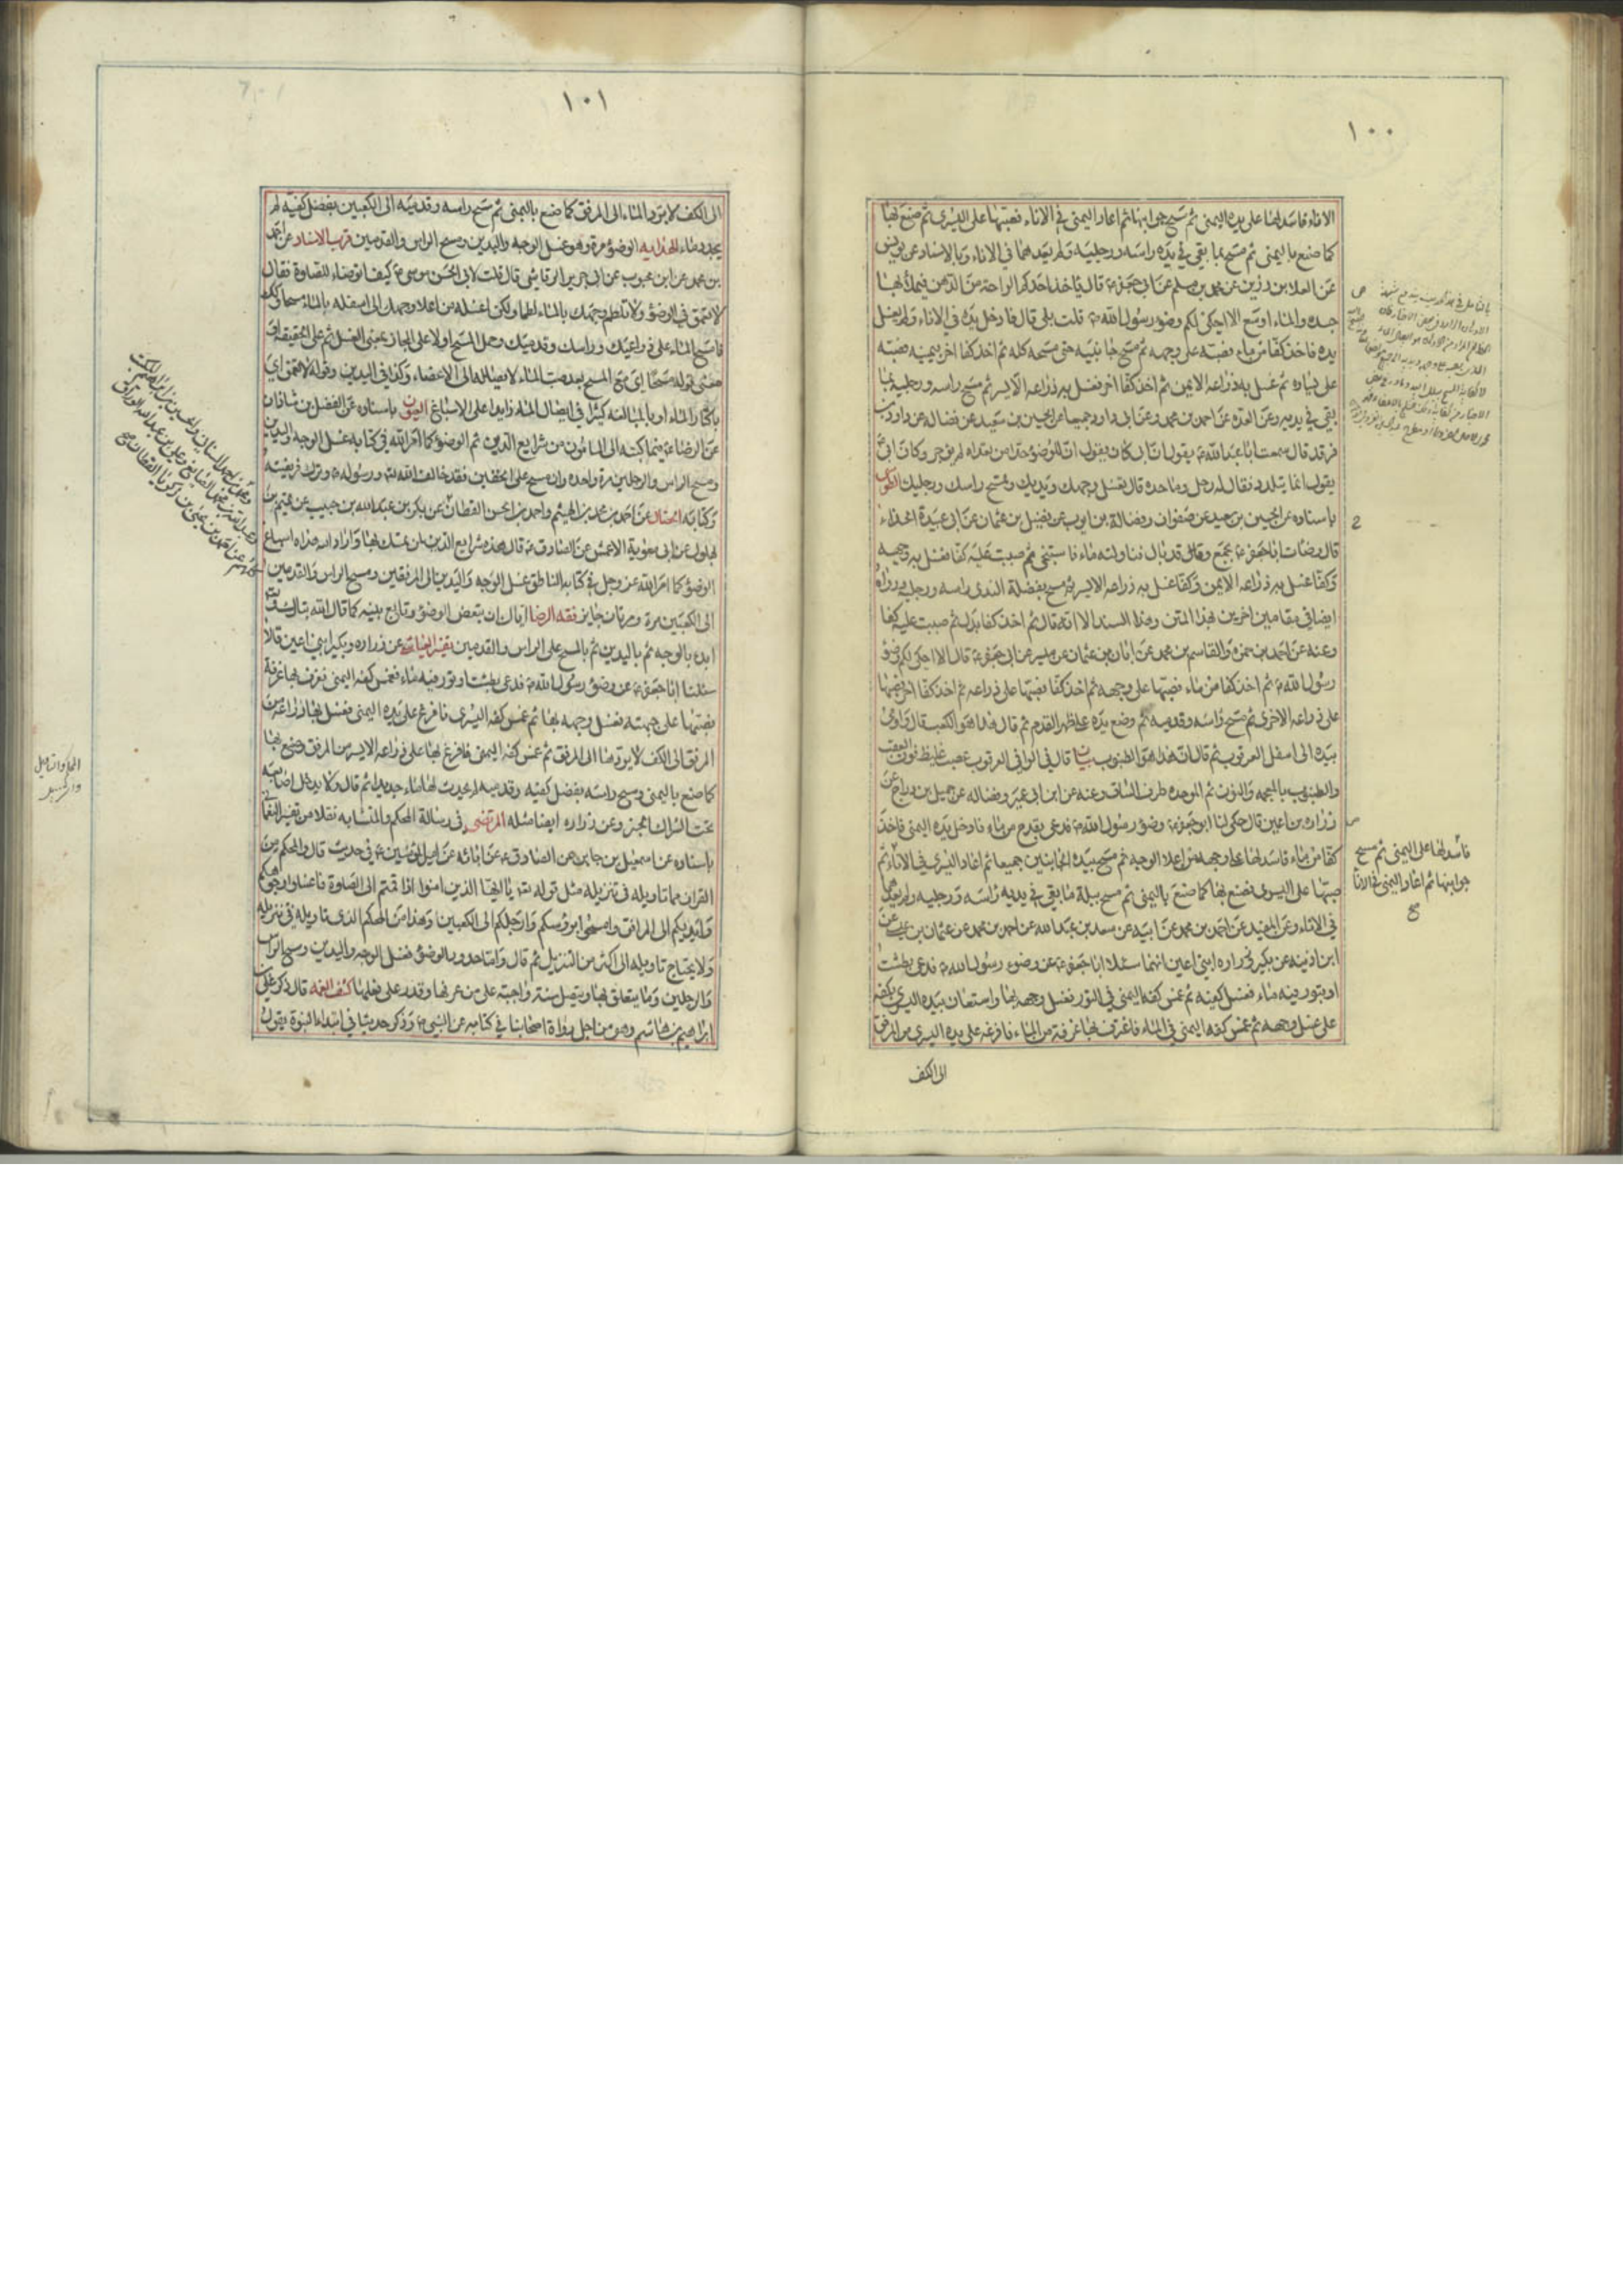 ١٠٠
الاناء فاسدلها على يده اليمنى ثم مسح جوانبها ثم اعاد اليمنى في الاناء فصبها على اليسرى ثم صنع بها
كما صنع باليمنى ثم مسح بما بقي في يده راسه ورجليه ولم يعدهما في الاناء وبالاسناد عن يونس
عن العلا بن رزين عن محمد بن مسلم عن ابي جعفر ع قال ياخذ احدكم الراحة من الدهن فيملأ بها
جسده والماء اوسع الا احكي لكم وضوء رسول الله ص قلت بلى قال فادخل يده في الاناء ولم يغسل
يده فاخذ كفا من ماء فصبه على وجهه ثم مسح جانبيه حتى مسحه كله ثم اخذ كفا اخر بيمينه فصبه
على يساره ثم غسل به ذراعه الايمن ثم اخذ كفا اخر فغسل به ذراعه الايسر ثم مسح راسه ورجليه بما
بقي في يديه وعن العدة عن احمد بن محمد وعن ابي داود جميعا عن الحسين بن سعيد عن فضالة عن داود بن
فرقد قال سمعت ابا عبد الله ع يقول ان ابي كان يقول ان للوضوء حدا من تعداه لم يوجر وكان ابي
يقول انما يتلدد فقال له رجل وما حده قال تغسل وجهك ويديك وتمسح راسك ورجليك
باسناده عن الحسين بن سعيد عن صفوان وفضالة بن ايوب عن فضيل بن عثمان عن ابي عبيدة الحذاء
قال وضات ابا جعفر ع بجمع وقد بال فناولته ماء فاستنجى ثم صببت عليه كفا فغسل به وجهه
وكفا غسل به ذراعه الايمن وكفا غسل به ذراعه الايسر ثم مسح بفضلة الندى راسه ورجليه ورواه
ايضا في مقامين اخرين بهذا المتن وهذا السند الا انه قال ثم اخذ كفا بدل ثم صببت عليه كفا
وعنه عن احمد بن حمزه والقاسم بن محمد عن ابان بن عثمان عن ميسر عن ابي جعفر ع قال الا احكي لكم وضوء
رسول الله ص ثم اخذ كفا من ماء فصبها على وجهه ثم اخذ كفا فصبها على ذراعه ثم اخذ كفا اخر فصبها
على ذراعه الاخرى ثم مسح راسه وقدميه ثم وضع يده على ظهر القدم ثم قال هذا هو الكعب قال واومى
بيده الى اسفل العرقوب ثم قال ان هذا هو الظنبوب بيان قال في الوافي العرقوب عصب غليظ فوق العقب
والظنبوب بالمعجمه والنون ثم الموحده طرف الساق وعنه عن ابن ابي عمير وفضاله عن جميل بن دراج عن
زراره بن اعين قال حكى لنا ابو جعفر ع وضوء رسول الله ص فدعى بقدح من ماء فادخل يده اليمنى فاخذ
كفا من ماء فاسدلها على وجهه من اعلا الوجه ثم مسح بيده الجانبين جميعا ثم اعاد اليسرى في الاناء ثم
صبها على اليسرى فصنع بها كما صنع باليمنى ثم مسح ببلة ما بقي في يديه راسه ورجليه ولم يعدهما
في الاناء وعن المفيد عن احمد بن محمد عن ابيه عن سعد بن عبد الله عن احمد بن محمد عن عثمان بن عيسى عن
ابن اذينه عن بكير وزراره ابني اعين انهما سئلا ابا جعفر ع عن وضوء رسول الله ص فدعى بطشت
او بتور فيه ماء فغسل كفيه ثم غمس كفه اليمنى في التور فغسل وجهه بها واستعان بيده اليسرى بكفه
على غسل وجهه ثم غمس كفه اليمنى في الماء فاغترف بها غرفة من الماء فافرغه على يده اليسرى من المرفق
الى الكف
فاسدلها على اليمنى ثم مسح
جوانبها ثم اعاد اليمنى في الاناء
صح
١٠١
الى الكف لا يرد الماء الى المرفق كما صنع باليمنى ثم مسح راسه وقدميه الى الكعبين بفضل كفيه لم
يجدد ماء الهدايه الوضوء مرة وهو غسل الوجه واليدين ومسح الراس والقدمين قرب الاسناد عن احمد
بن محمد عن ابن محبوب عن ابي جرير الرقاشي قال قلت لابي الحسن موسى ع كيف اتوضاء للصلوة فقال
لا تعمق في الوضوء ولا تلطم وجهك بالماء لطما ولكن اغسله من اعلا وجهك الى اسفله بالماء مسحا وكذلك
فامسح الماء على ذراعيك وراسك وقدميك وحمل المسح اولا على المجاز بمعنى الغسل ثم على الحقيقه
معنى قوله مسحا اي مع المسح بعد صب الماء لايصاله الى الاعضاء وكذا في اليدين وقوله لا تعمق اي
باكثار الماء او بالمبالغه كثيرا في ايصال الماء زايدا على الاسباغ العيون باسناده عن الفضل بن شاذان
عن الرضا ع فيما كتبه الى المامون من شرايع الدين ثم الوضوء كما امر الله في كتابه غسل الوجه واليدين
ومسح الراس والرجلين مرة واحده وان مسح على الخفين فقد خالف الله تع ورسوله ص وترك فريضته
وكتابه الخصال عن احمد بن محمد بن الهيثم واحمد بن الحسن القطان عن بكر بن عبد الله بن حبيب عن تميم بن
بهلول عن ابي معوية الاعمش عن الصادق ع قال هذه شرايع الدين لمن تمسك بها واراد الله هداه اسباغ
الوضوء كما امر الله عز وجل في كتابه الناطق غسل الوجه واليدين الى المرفقين ومسح الراس والقدمين
الى الكعبين مرة ومرتان جايز فقه الرضا اياك ان يتبعض الوضوء وتابع بينه كما قال الله تبارك وتعالى
ابدء بالوجه ثم باليدين ثم بالمسح على الراس والقدمين تفسير العياشي عن زراره وبكير ابني اعين قالا
سئلنا ابا جعفر ع عن وضوء رسول الله ص فدعى بطشت او تور فيه ماء فغمس كفه اليمنى فغرف بها غرفة
فصبها على جبهته فغسل وجهه بها ثم غمس كفه اليسرى فافرغ على يده اليمنى فغسل بها ذراعه من
المرفق الى الكف لا يردها الى المرفق ثم غمس كفه اليمنى فافرغ بها على ذراعه الايسر من المرفق وصنع بها
كما صنع باليمنى ومسح راسه بفضل كفيه وقدميه لم يحدث لها ماء جديدا ثم قال ولا يدخل اصابعه
تحت الشراك الخبر وعن زراره ايضا مثله المرتضى في رسالة المحكم والمتشابه نقلا من تفسير النعماني
باسناده عن اسمعيل بن جابر عن الصادق ع عن ابائه عن امير المؤمنين ع في حديث قال والمحكم من
القران مما تاويله في تنزيله مثل قوله تع يا ايها الذين امنوا اذا قمتم الى الصلوة فاغسلوا وجوهكم
وايديكم الى المرافق وامسحوا برؤسكم وارجلكم الى الكعبين وهذا من المحكم الذي تاويله في تنزيله
ولا يحتاج تاويله الى اكثر من التنزيل ثم قال واما حدود الوضوء فغسل الوجه واليدين ومسح الراس
والرجلين وما يتعلق بها ويتصل سنة واجبة على من عرفها وقدر على فعلها كشف الغمه قال ذكر علي بن
ابراهيم بن هاشم وهو من اجل رواة اصحابنا في كتابه عن النبي ص وذكر حديثا في ابتداء النبوة يقول